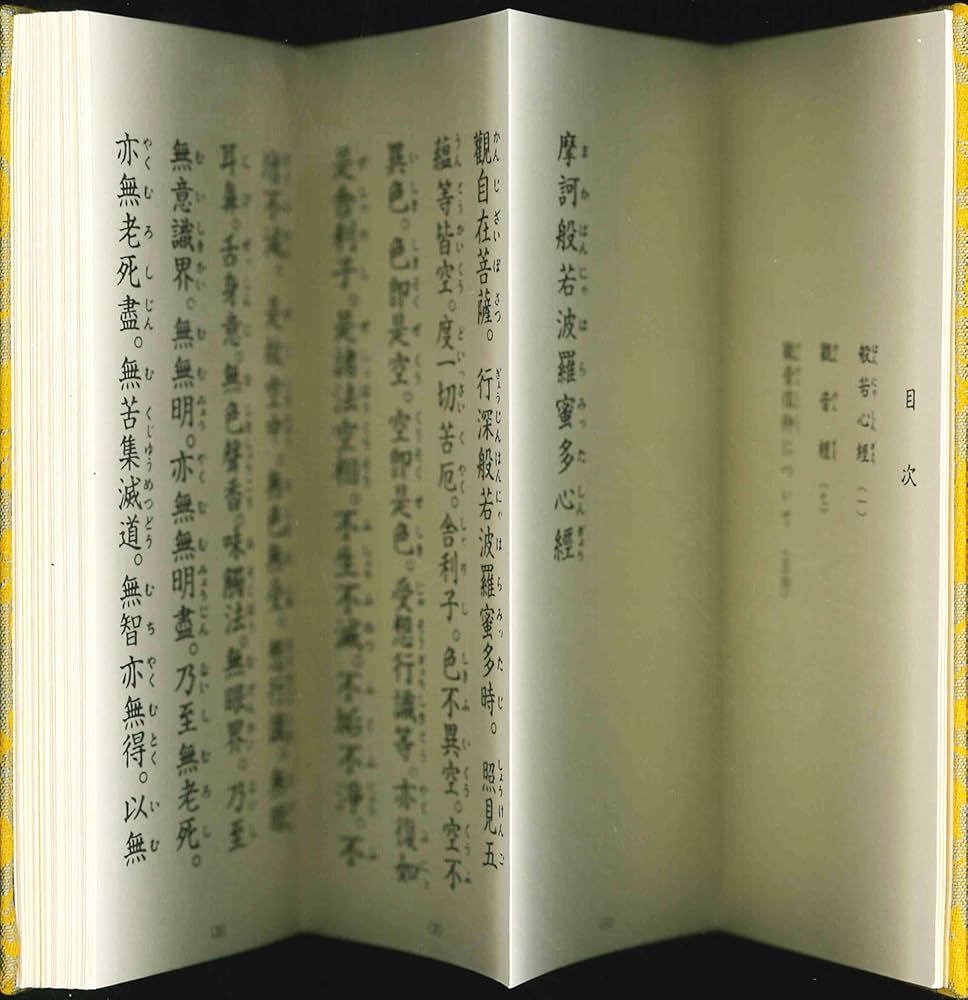 目次
般若心經（一）
觀音經（七）
について
摩訶般若波羅蜜多心經
觀自在菩薩。行深般若波羅蜜多時。照見五
蘊等皆空。度一切苦厄。舍利子。色不異空。空不
(2)
異色。色即是空。空即是色。受想行識等。亦復如
是舍利子。是諸法空相。不生不滅。不垢不淨。不
增不減。是故空中。無色無受。想行識。無眼
耳鼻。舌身意。無色聲香。味觸法。無眼界。乃至
(3)
無意識界。無無明。亦無無明盡。乃至無老死。
亦無老死盡。無苦集滅道。無智亦無得。以無